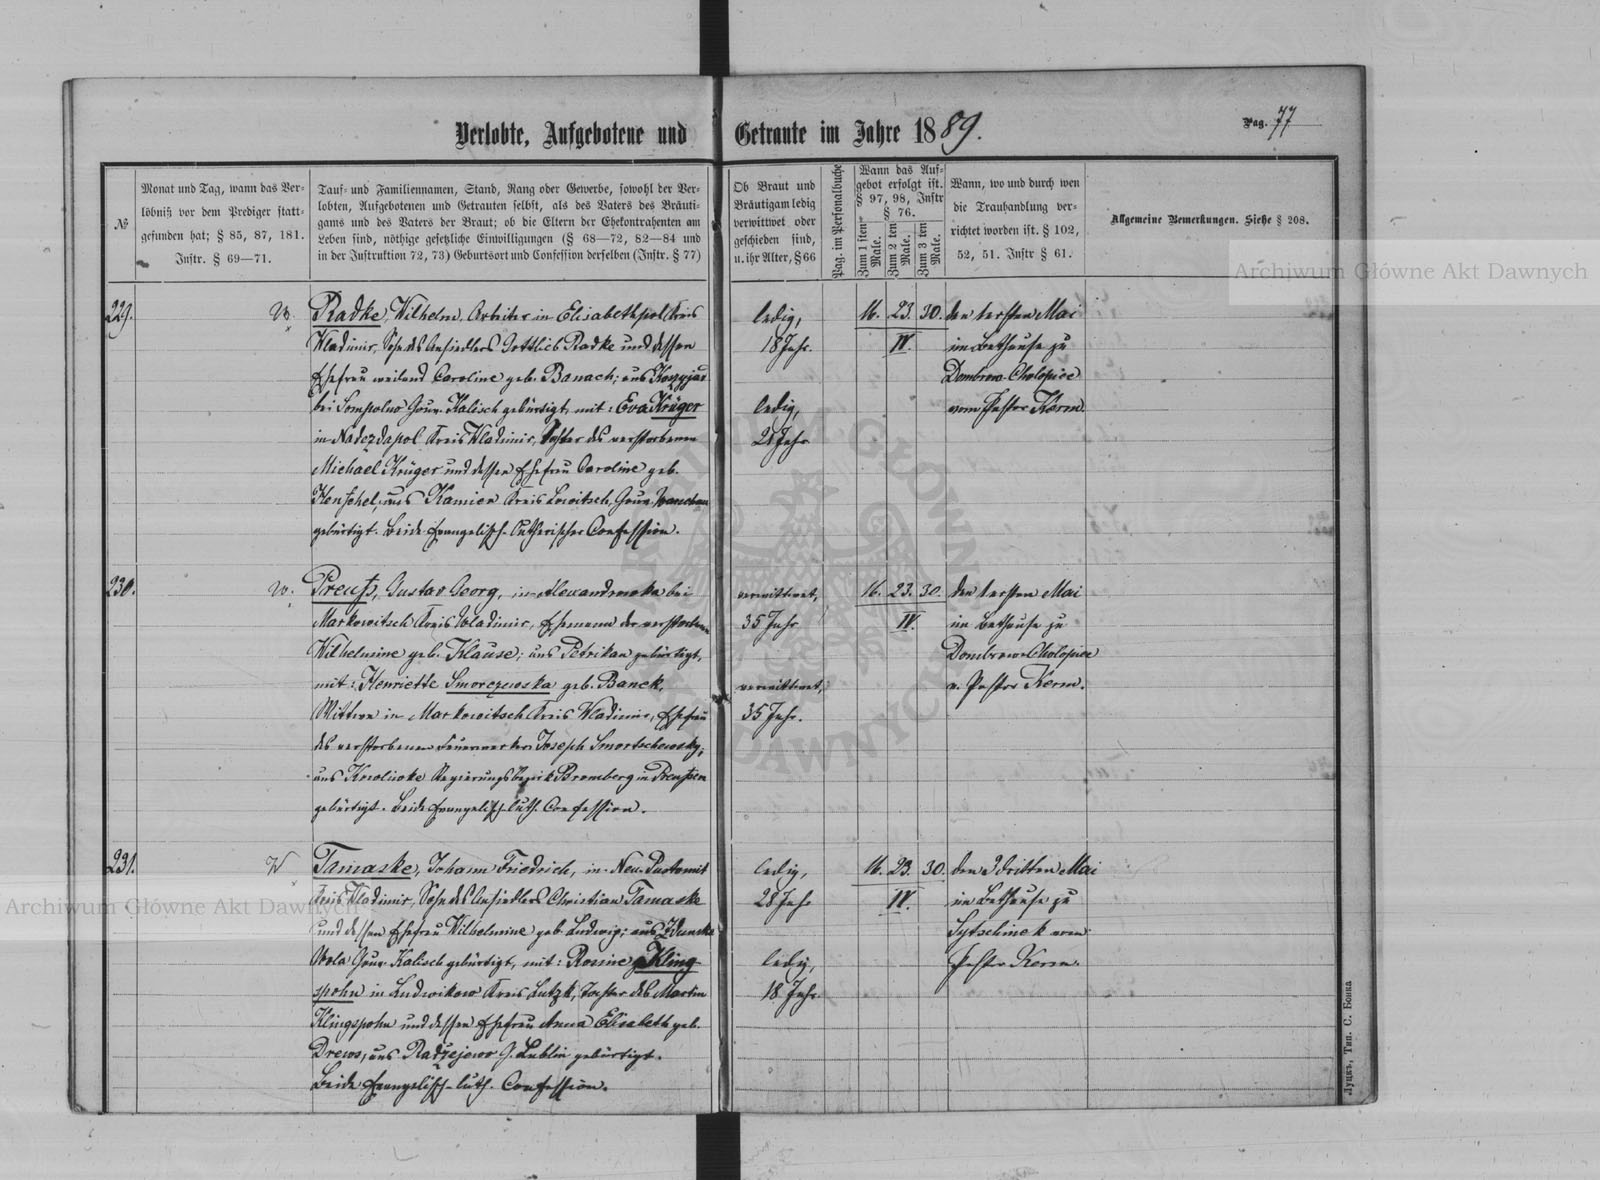 Verlobte, Aufgebotene und Getraute im Jahre 1889.
Pag. 77
№
Monat und Tag, wann das Ver-
löbniß vor dem Prediger statt-
gefunden hat; § 85, 87, 181.
Instr. § 69—71.
Tauf- und Familiennamen, Stand, Rang oder Gewerbe, sowohl der Ver-
lobten, Aufgebotenen und Getrauten selbst, als des Vaters des Bräuti-
gams und des Vaters der Braut; ob die Eltern der Ehekontrahenten am
Leben sind, nöthige gesetzliche Einwilligungen (§ 68—72, 82—84 und
in der Instruktion 72, 73) Geburtsort und Confession derselben (Instr. § 77)
Ob Braut und
Bräutigam ledig
verwittwet oder
geschieden sind,
u. ihr Alter, § 66
Pag. im Personalbuche
Wann das Auf-
gebot erfolgt ist.
§ 97, 98, Instr
§ 76.
Zum 1 sten
Male.
Zum 2 ten
Male.
Zum 3 ten
Male.
Wann, wo und durch wen
die Trauhandlung ver-
richtet worden ist. § 102,
52, 51. Instr § 61.
Allgemeine Bemerkungen. Siehe § 208.
229.
W.
Radke, Wilhelm, Arbeiter in Elisabethpol Kreis
Wladimir, Sohn des Ansiedlers Gottlieb Radke und dessen
Ehefrau weiland Caroline geb. Banach; aus
bei Sompolno Gouv. Kalisch gebürtigt, mit: Eva Krüger
in Nadezdapol Kreis Wladimir, Tochter des verstorbenen
Michael Krüger und dessen Ehefrau Caroline geb.
Henschel, aus Kamien Kreis Lowitsch, Gouv. Warschau
gebürtigt. Beide Evangelisch-Lutherischer Confession.
ledig,
18 Jahr.
ledig,
21 Jahr
16. 23. 30.
IV.
den 1 ersten Mai
im Bethause zu
Dombrowa-Cholopiee
vom Pastor Kerm.
230.
W.
Preuß, Gustav Georg, in Alexandrowka bei
Markowitsch Kreis Wladimir, Ehemann der verstorbenen
Wilhelmine geb. Klause; aus Petrikau gebürtigt,
mit: Henriette Smorczewska geb. Banek,
Wittwe in Markowitsch Kreis Wladimir, Ehefrau
des verstorbenen Feuerwerker Joseph Smortschewsky;
aus Regierungsbezirk Bromberg in Preußen
gebürtigt. Beide Evangelisch-luth. Confession.
verwittwet,
35 Jahr
verwittwet,
35 Jahr.
16. 23. 30.
IV.
den 1 ersten Mai
im Bethause zu
Dombrowa Cholopiee
v. Pastor Kerm.
231.
W
Tamaske, Johann Friedrich, in Neu-Pustomit
Kreis Wladimir, Sohn des Ansiedlers Christian Tamaske
und dessen Ehefrau Wilhelmine geb. Ludwig; aus Zdunska
Wola Gouv. Kalisch gebürtigt, mit: Rosine Kling-
spohn in Ludwikow Kreis Lutzk, Tochter des Martin
Klingspohn und dessen Ehefrau Anna Elisabeth geb.
Drews, aus Radzejewo G. Lublin gebürtigt.
Beide Evangelisch-luth. Confession.
ledig,
28 Jahr
ledig,
18 Jahr
16. 23. 30.
IV.
den 3 dritten Mai
im Bethause zu
Sytschinek vom
Pastor Kerm.
Луцкъ, Тип. С. Бонка
Archiwum Główne Akt Dawnych
Archiwum Główne Akt Dawnych
ARCHIWUM GŁÓWNE AKT DAWNYCH